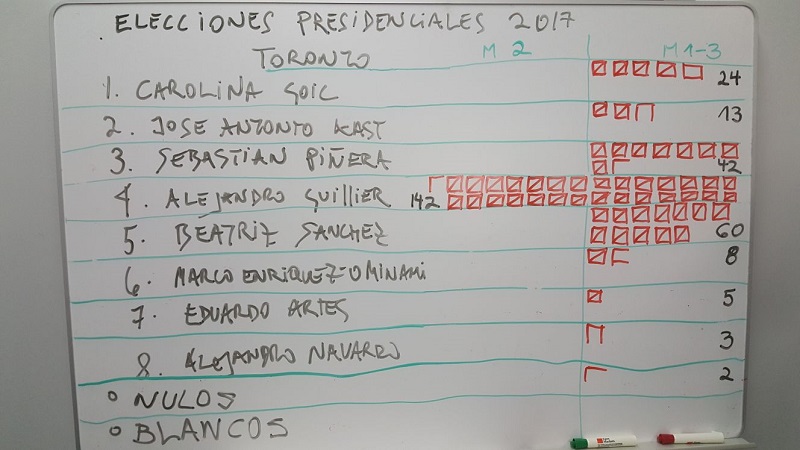 ELECCIONES PRESIDENCIALES 2017
TORONTO M2 M1-3
1. CAROLINA GOIC 24
2. JOSE ANTONIO KAST 13
3. SEBASTIAN PIÑERA 42
4. ALEJANDRO GUILLIER 142
5. BEATRIZ SANCHEZ 60
6. MARCO ENRIQUEZ-OMINAMI 8
7. EDUARDO ARTES 5
8. ALEJANDRO NAVARRO 3
○ NULOS 2
○ BLANCOS